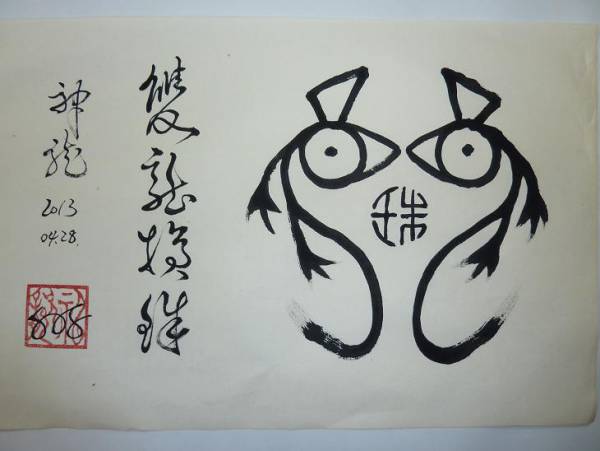 珠
雙龍搶珠
神龍
2013
04.28.